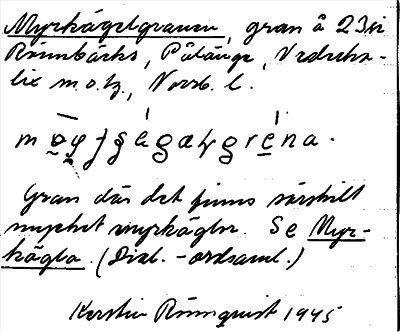 Myrkägelgranen, gran å 23:i
Rönnbäcks, Pålänge, Nederka-
lix m.o.tg, Norrb. l.
Gran där det finns särskilt
mycket myrkäglor. Se Myr-
kägla. (Dial.-ordsaml.)
Kerstin Rönnquist 1945